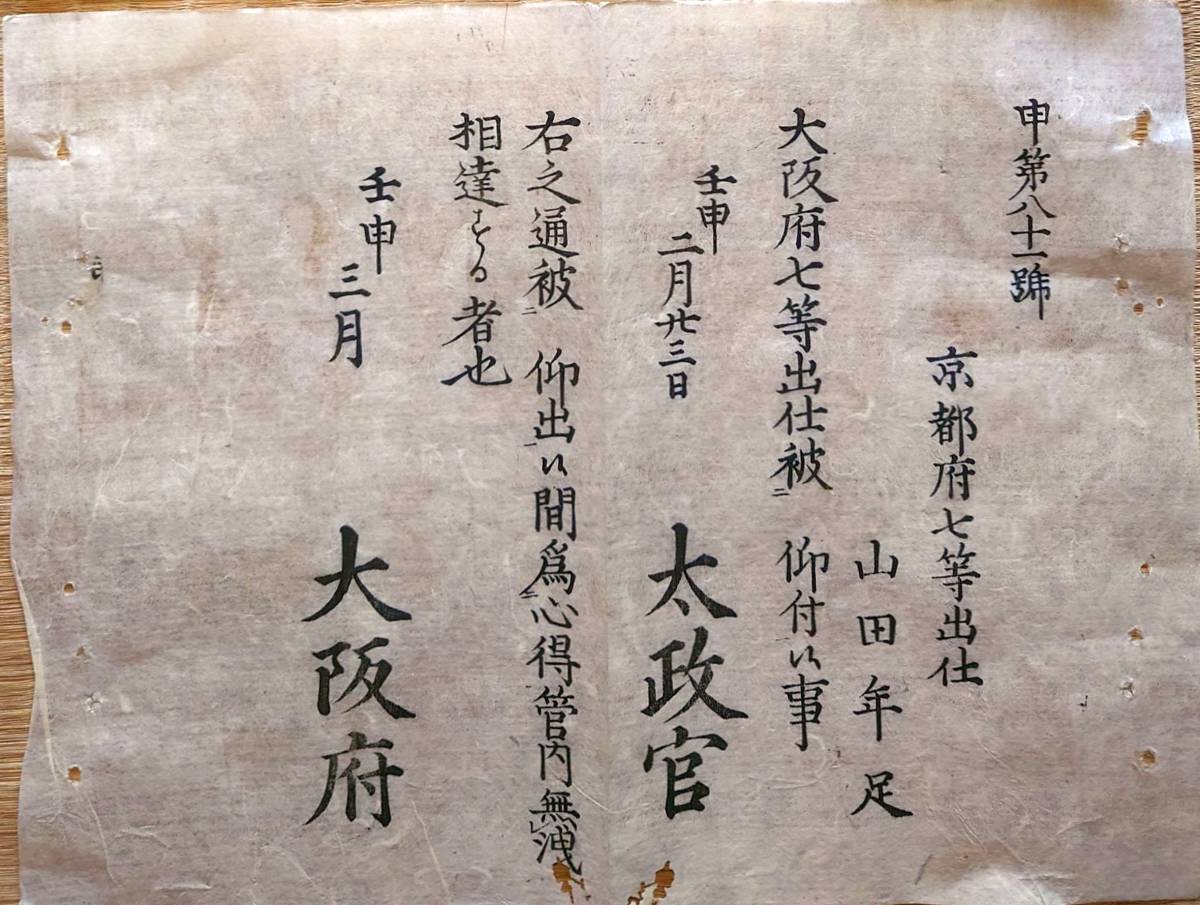 申第八十一號
京都府七等出仕
山田年足
大阪府七等出仕被二 仰付一候事
壬申
二月廿三日
太政官
右之通被二 仰出一候間爲二心得一管内無レ洩
相達する者也
壬申
三月
大阪府